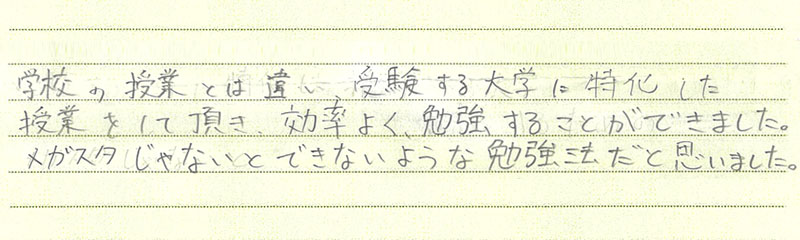 学校の授業とは違い、受験する大学に特化した
授業をして頂き、効率よく、勉強することができました。
メガスタじゃないとできないような勉強法だと思いました。